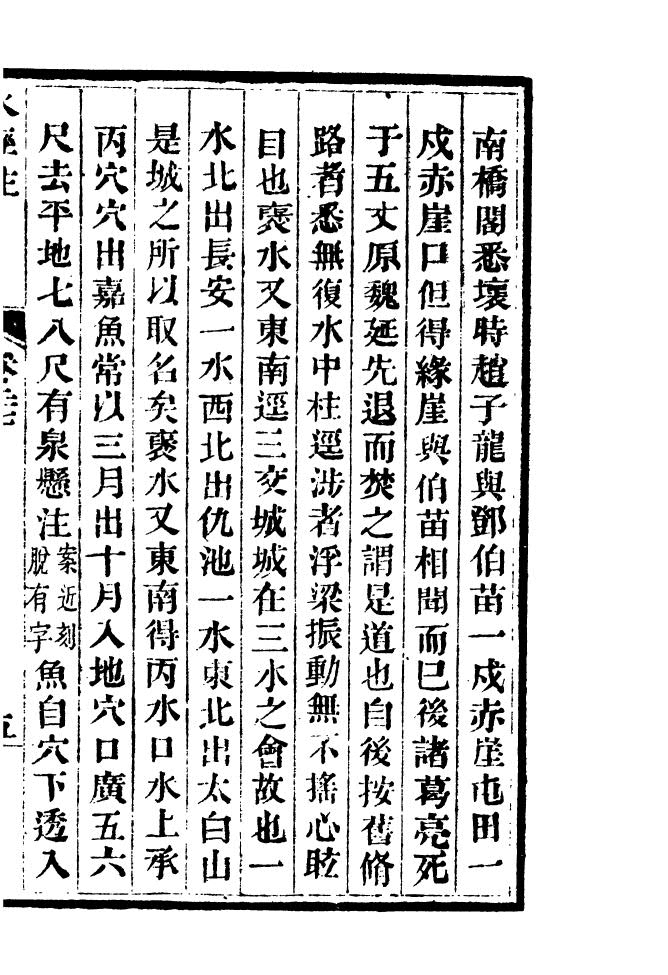 南橋閣悉壞時趙子龍與鄧伯苗一戍赤崖屯田一
戍赤崖口但得緣崖與伯苗相聞而已後諸葛亮死
于五丈原魏延先退而焚之謂是道也自後按舊脩
路者悉無復水中柱逕涉者浮梁振動無不搖心眩
目也襃水又東南逕三交城城在三水之會故也一
水北出長安一水西北出仇池一水東北出太白山
是城之所以取名矣襃水又東南得丙水口水上承
丙穴穴出嘉魚常以三月出十月入地穴口廣五六
尺去平地七八尺有泉懸注案近刻脫有字魚自穴下透入
水經注 五